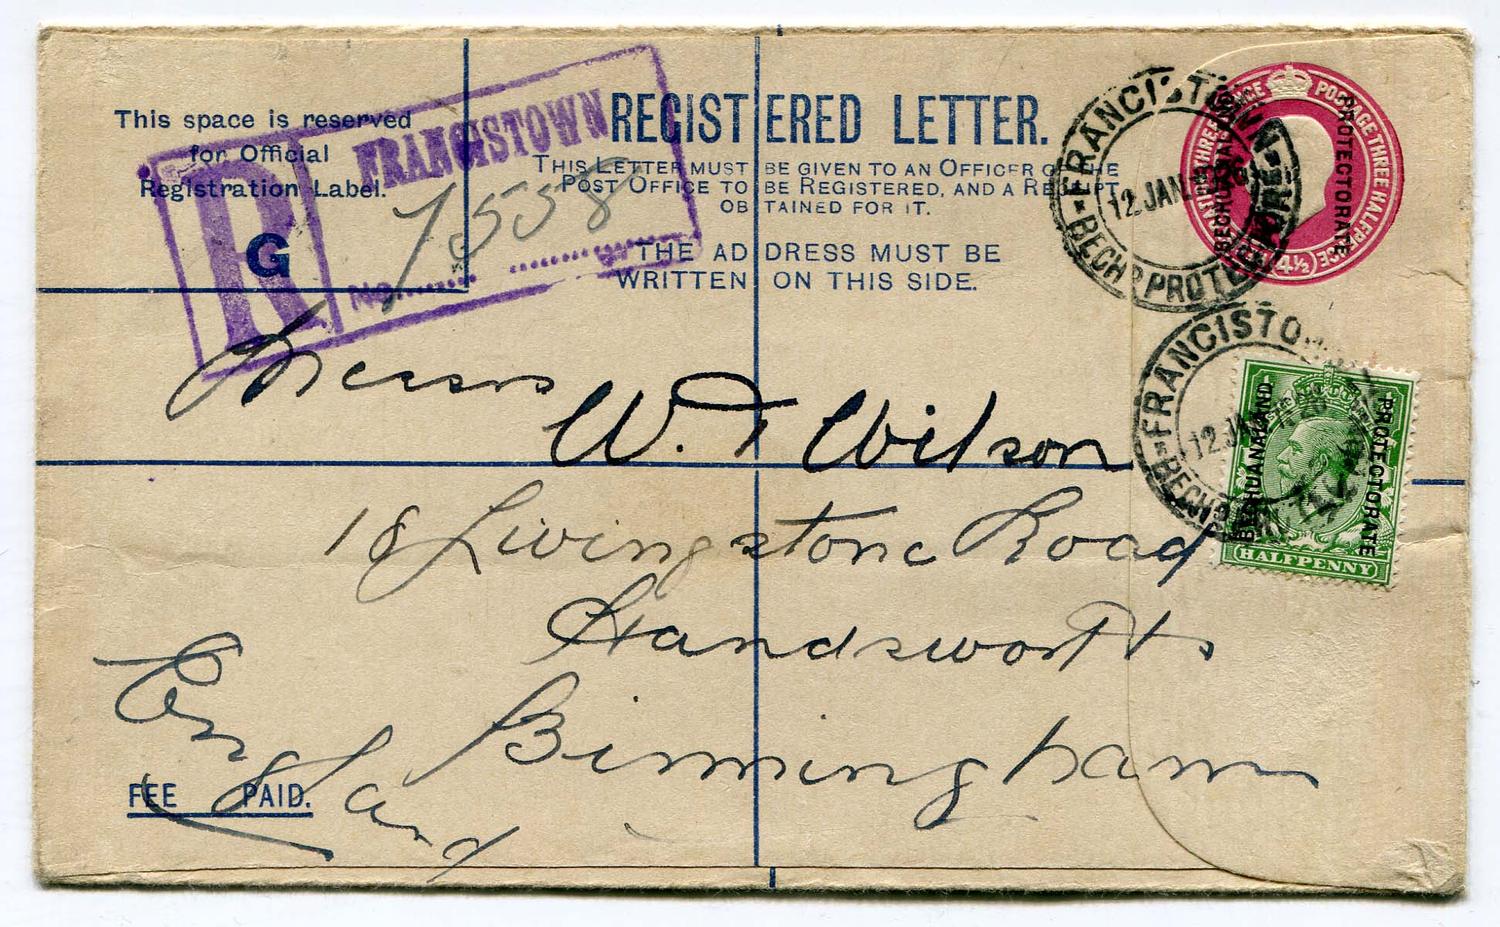 This space is reserved
for Official
Registration Label.
G
R
FRANCISTOWN
No
7558
REGISTERED LETTER.
THIS LETTER MUST BE GIVEN TO AN OFFICER OF THE
POST OFFICE TO BE REGISTERED, AND A RECEIPT
OBTAINED FOR IT.
THE ADDRESS MUST BE
WRITTEN ON THIS SIDE.
FRANCISTOWN
12 JAN
BECHD PROT
POSTAGE THREE HALFPENCE
4½
BECHUANALAND
PROTECTORATE
FRANCISTO
12 JA
BECHD
BECHUANALAND
PROTECTORATE
HALFPENNY
Messrs
W. T Wilson
18 Livingstone Road
Handsworth
Birmingham
England
FEE PAID.